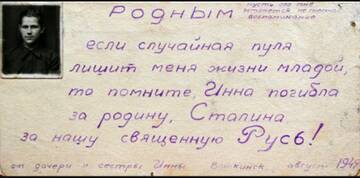 Родным
пусть это мне
останется не
воспоминание
если случайная пуля
лишит меня жизни младой,
то помните, Инна погибла
за родину, Сталина
за нашу священную Русь!
от дочери и сестры Инны Воткинск август 194